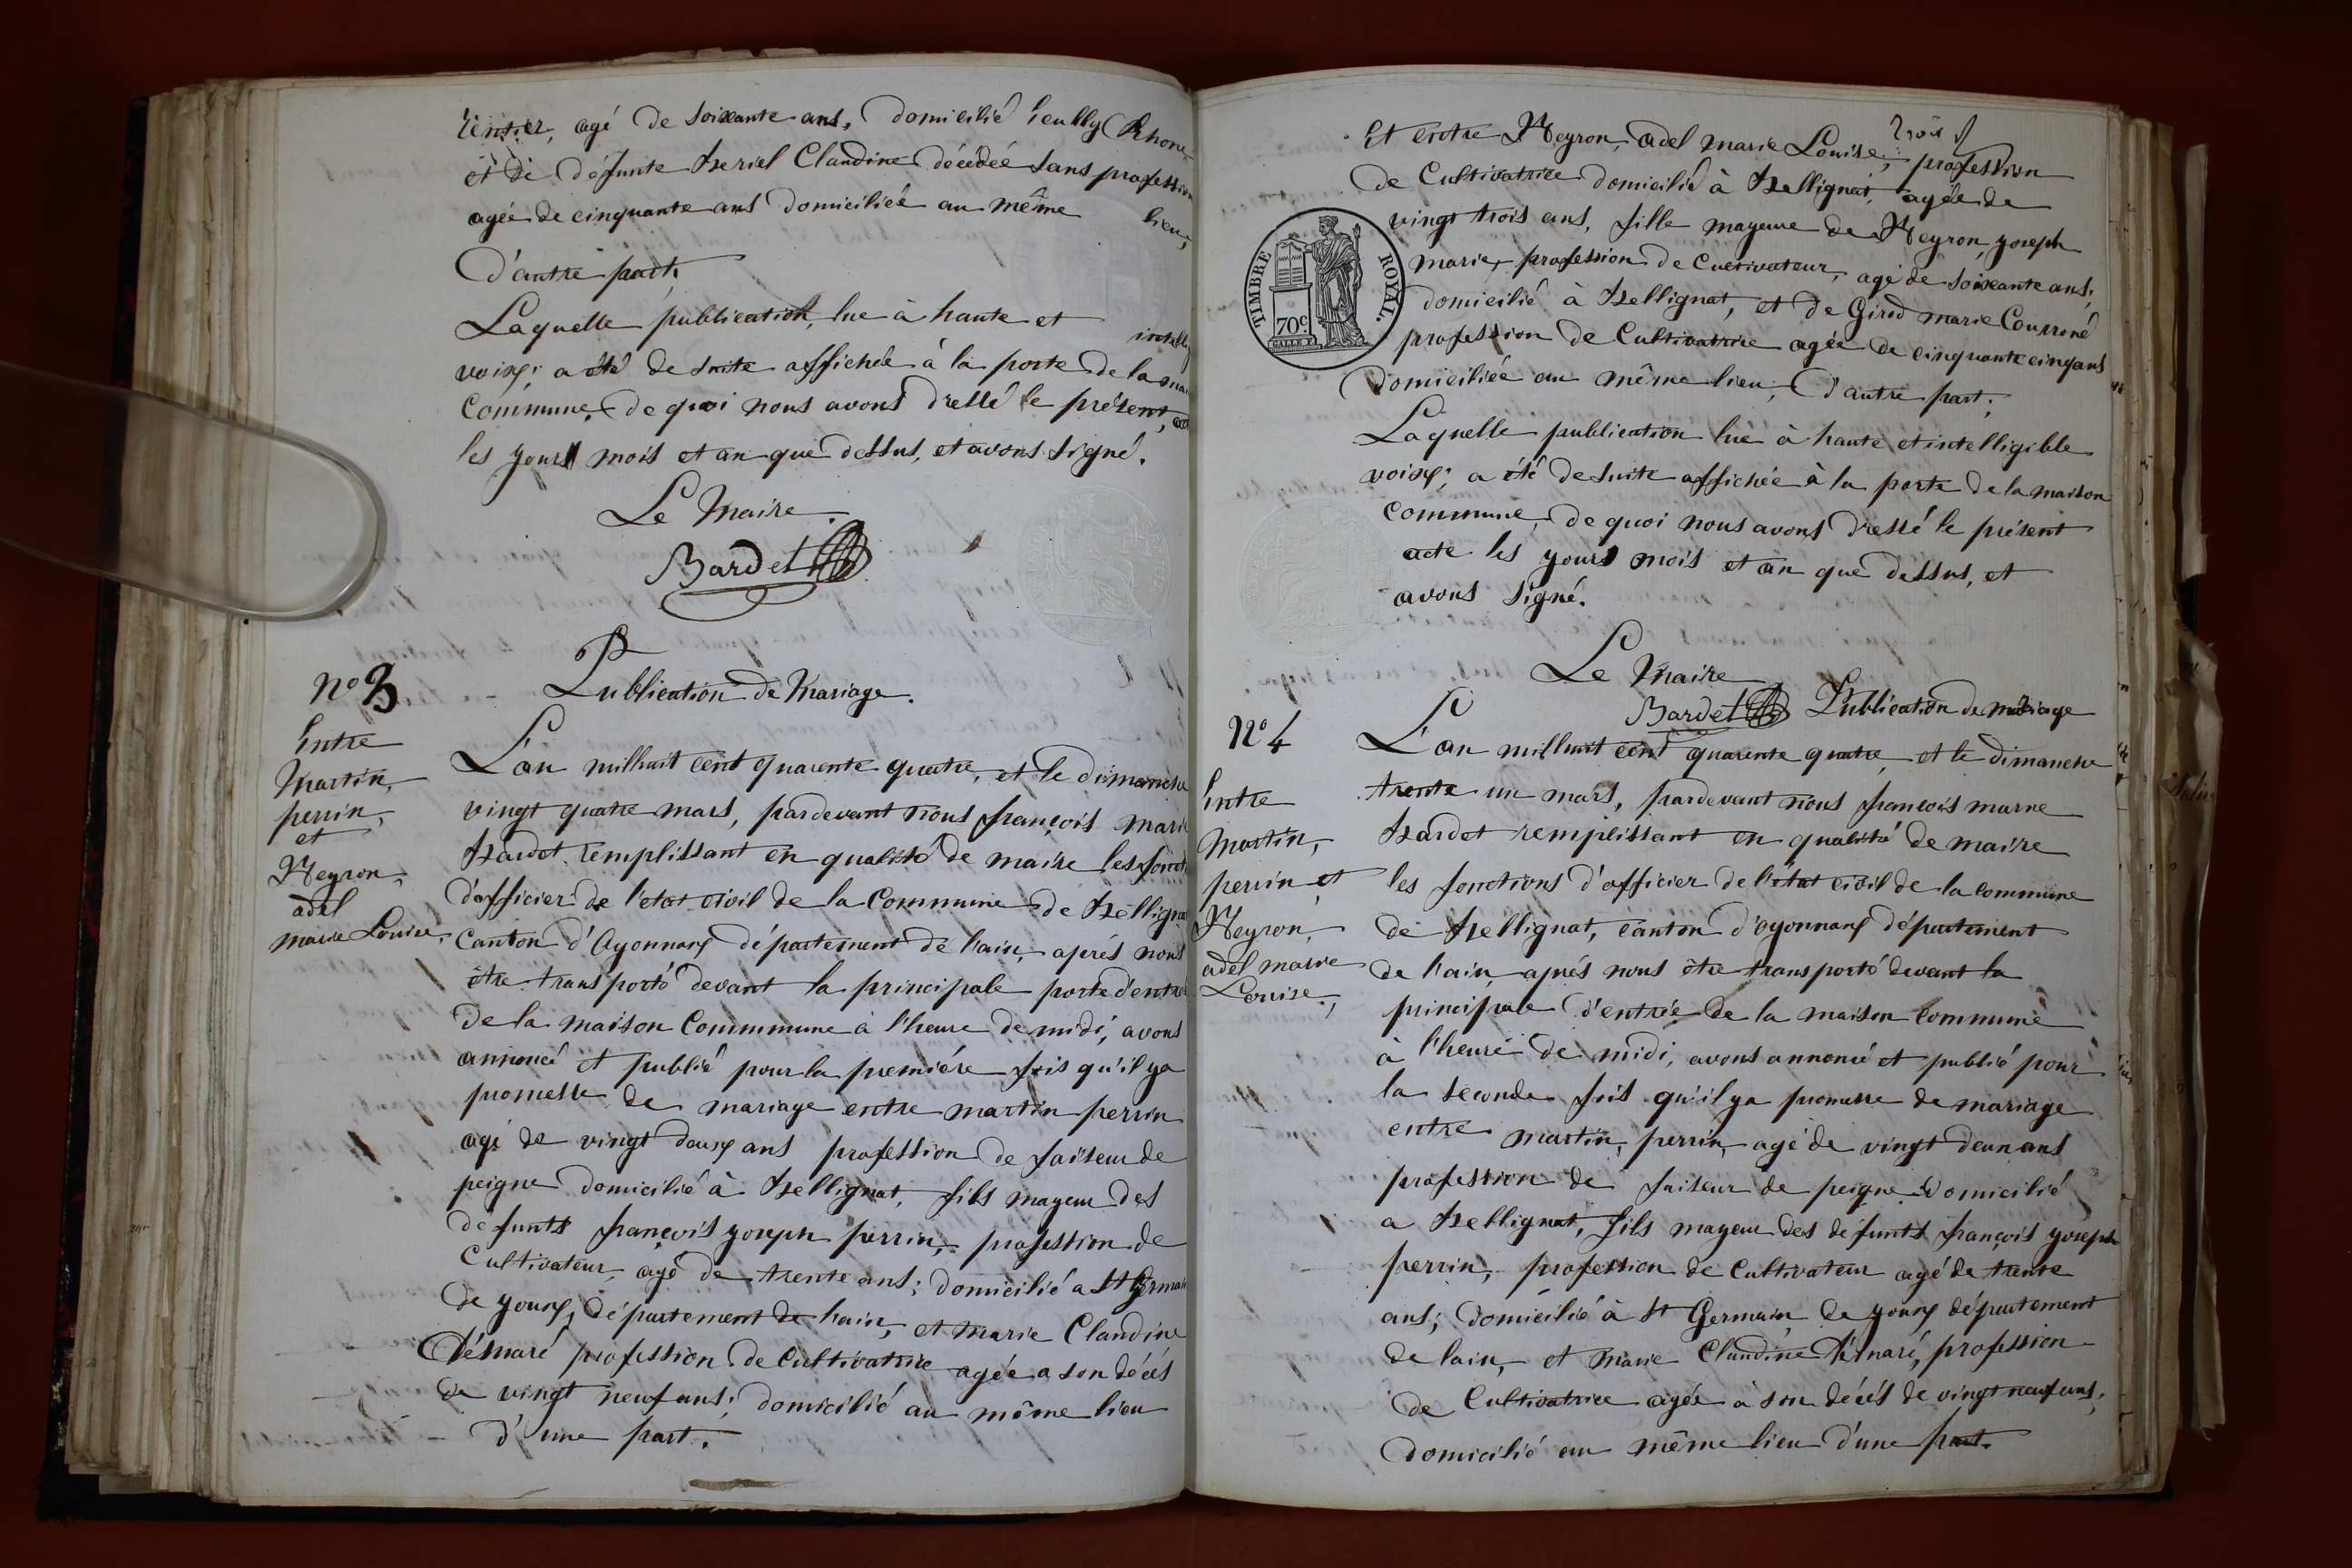 rentier, agé de soixante ans, domicilié Reully (Rhone
et de défunte Beriel Claudine décédée sans profession
agée de cinquante ans domiciliée au même lieu,
D'autre part,
Laquelle publication, lue à haute et intellig
voix; a été de suite affichée à la porte de la mai
Commune, de quoi nous avons dressé le présent, act
les yours mois et an que dessus, et avons signé.
Le Maire
Bardet
No 3
Entre
Martin,
perrin,
et
Neyron,
adel
marie Louise.
Publication de Mariage.
L'an milhuit cent quarente quatre, et le dimanche
vingt quatre mars, pardevant nous françois marie
Bardet remplissant en qualité de maire les foncti
d'officier de l'etat civil de la Commune de Bellignat
Canton d'Oyonnax département de l'ain, aprés nous
être transporté devant la principale porte d'entrée
de la maison Commmune à l'heure de midi, avons
annoncé et publié pour la premiére fois qu'il ya
promesse de mariage entre martin perrin
agé de vingt deux ans profession de faiseur de
peigne domicilié à Bellignat, fils mayeur des
defunts françois yoseph perrin, profession de
Cultivateur, agé de trente ans; domicilié a St Germain
de youx, département de l'ain, et marie Claudine
Démaré profession de Cultivatrice agée a son décés
de vingt neuf ans; domicilié au même lieu
d'une part.
trois
Et entre Neyron, adel marie Louise, profession
de Cultivatrice domicilié à Bellignat, agée de
vingt trois ans, fille mayeure de Neyron, yoseph
marie, profession de Cultivateur, agé de soixante ans,
domicilié à Bellignat, et de Girod marie Couronné
profession de Cultivatrice agée de cinquante cinq ans
domiciliée au même lieu, D'autre part,
TIMBRE ROYAL.
70c.
Laquelle publication lue à haute et intelligible
voix; a été de suite affichée à la porte de la maison
Commune, de quoi nous avons dressé le présent
acte les yours mois et an que dessus, et
avons signé.
Le Maire
Bardet
Publication de mariage
No 4
Entre
Martin,
perrin et
Neyron,
adel marie
Louise,
L'an milhuit cent quarente quatre, et le dimanche
trente un mars, pardevant nous françois marie
Bardet remplissant en qualité de maire
les fonctions d'officier de l'état civil de la commune
de Bellignat, canton d'oyonnax département
de l'ain, aprés nous être transporté devant la
principale d'entrée de la maison Commune
à l'heure de midi, avons annoncé et publié pour
la seconde fois qu'il ya promesse de mariage
entre martin, perrin, agé de vingt deux ans
profession de faiseur de peigne domicilié
a Bellignat, fils mayeur des defunts françois yoseph
perrin, profession de Cultivateur agé de trente
ans; domicilié à St Germain de youx département
de lain, et marie Claudine Démaré, profession
de Cultivatrice agée à son décés de vingt neuf ans,
domicilié au même lieu d'une part.